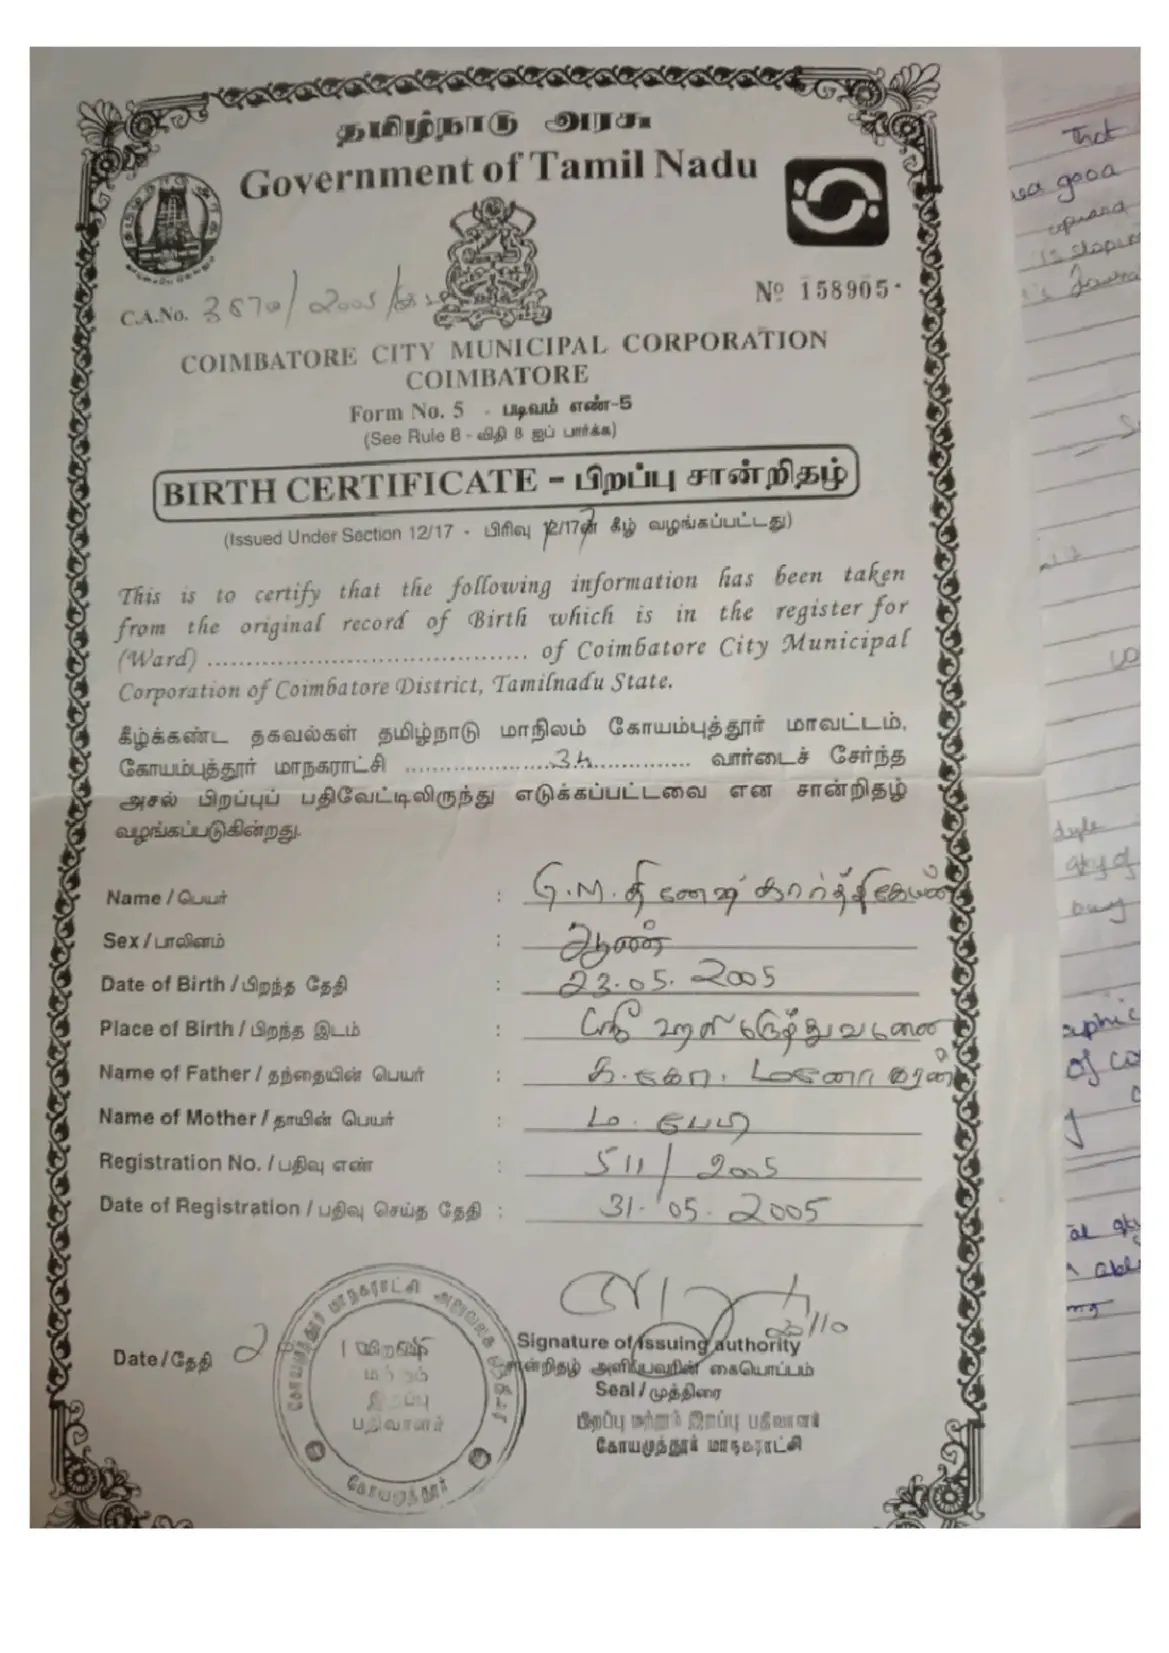 தமிழ்நாடு அரசு
Government of Tamil Nadu
C.A.No. 3570/2005/
Nº 158905
COIMBATORE CITY MUNICIPAL CORPORATION
COIMBATORE
Form No. 5 - படிவம் எண்-5
(See Rule 8 - விதி 8 ஐப் பார்க்க)
BIRTH CERTIFICATE - பிறப்பு சான்றிதழ்
(Issued Under Section 12/17 - பிரிவு 12/17ன் கீழ் வழங்கப்பட்டது)
This is to certify that the following information has been taken
from the original record of Birth which is in the register for
(Ward) ........................................ of Coimbatore City Municipal
Corporation of Coimbatore District, Tamilnadu State.
கீழ்க்கண்ட தகவல்கள் தமிழ்நாடு மாநிலம் கோயம்புத்தூர் மாவட்டம்,
கோயம்புத்தூர் மாநகராட்சி .....................34.............. வார்டைச் சேர்ந்த
அசல் பிறப்புப் பதிவேட்டிலிருந்து எடுக்கப்பட்டவை என சான்றிதழ்
வழங்கப்படுகின்றது.
Name / பெயர் : G.M. தினேஷ் கார்த்திகேயன்
Sex / பாலினம் : ஆண்
Date of Birth / பிறந்த தேதி : 23.05.2005
Place of Birth / பிறந்த இடம் : ஸ்ரீ ஹரி மருத்துவமனை
Name of Father / தந்தையின் பெயர் : க.கோ. மனோகரன்
Name of Mother / தாயின் பெயர் : ம. பேபி
Registration No. / பதிவு எண் : 511/2005
Date of Registration / பதிவு செய்த தேதி : 31.05.2005
Date / தேதி
கோயமுத்தூர் மாநகராட்சி அலுவலக முத்திரை
பிறப்பு
மற்றும்
இறப்பு
பதிவாளர்
கோயமுத்தூர்
Signature of Issuing authority
சான்றிதழ் அளிப்பவரின் கையொப்பம்
Seal / முத்திரை
பிறப்பு மற்றும் இறப்பு பதிவாளர்
கோயமுத்தூர் மாநகராட்சி
That
good
square